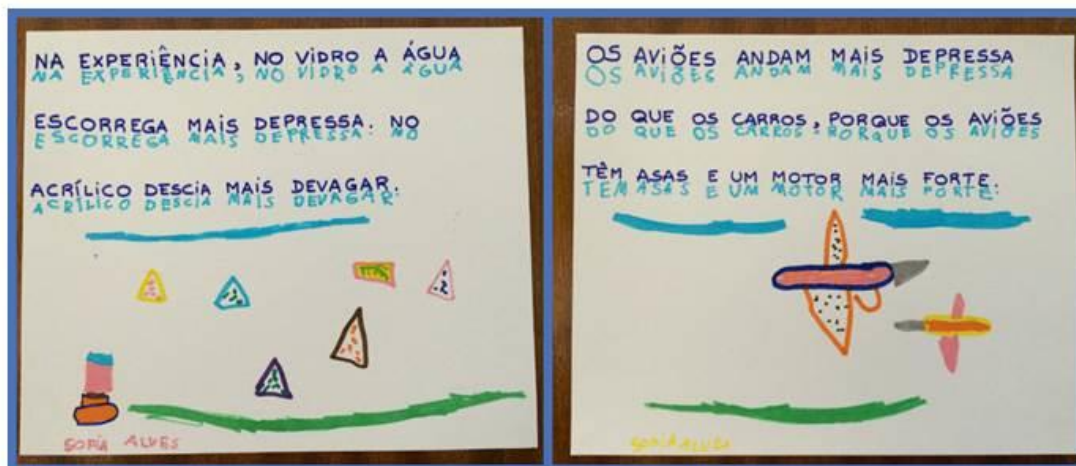 NA EXPERIÊNCIA, NO VIDRO A ÁGUA
NA EXPERIÊNCIA, NO VIDRO A ÁGUA
ESCORREGA MAIS DEPRESSA. NO
ESCORREGA MAIS DEPRESSA. NO
ACRÍLICO DESCIA MAIS DEVAGAR.
ACRÍLICO DESCIA MAIS DEVAGAR.
SOFIA ALVES
OS AVIÕES ANDAM MAIS DEPRESSA
OS AVIÕES ANDAM MAIS DEPRESSA
DO QUE OS CARROS, PORQUE OS AVIÕES
DO QUE OS CARROS, PORQUE OS AVIÕES
TÊM ASAS E UM MOTOR MAIS FORTE.
TEM ASAS E UM MOTOR MAIS FORTE.
SOFIA ALVES